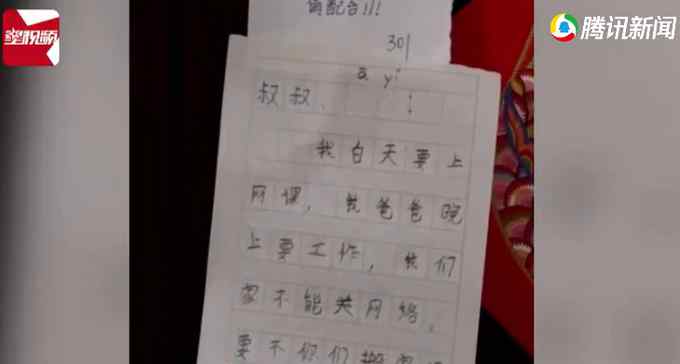 蜀视频
腾讯新闻
请配合!!!
301
a yi
叔叔、:
我白天要上
网课，我爸爸晚
上要工作，我们
家不能关网络。
要不你们搬家